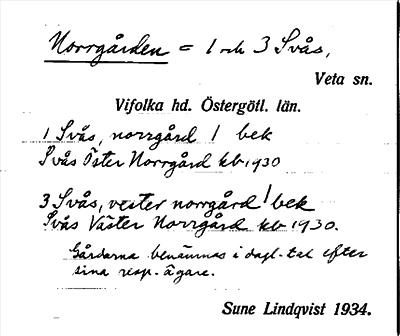 Norrgården = 1 och 3 Svås,
Veta sn.
Vifolka hd. Östergötl. län.
1 Svås, norrgård 1 bek
Svås Öster Norrgård kb 1930
3 Svås, vester norrgård 1 bek
Svås Väster Norrgård kb 1930.
Gårdarna benämnas i dagl. tal efter
sina resp. ägare.
Sune Lindqvist 1934.